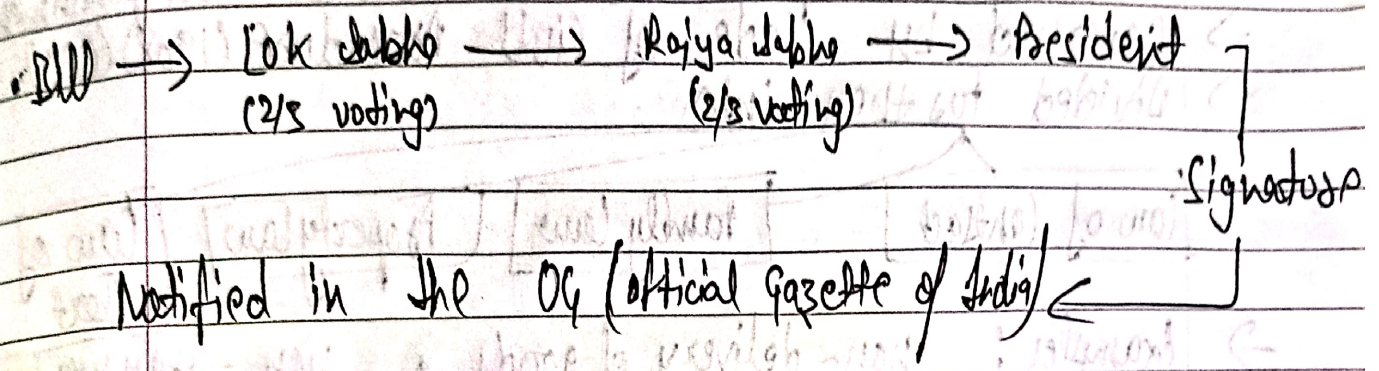 .Bill → Lok Sabha → Rajya Sabha → President
(2/3 voting) (2/3 voting)
Signature
Notified in the OG (Official Gazette of India)